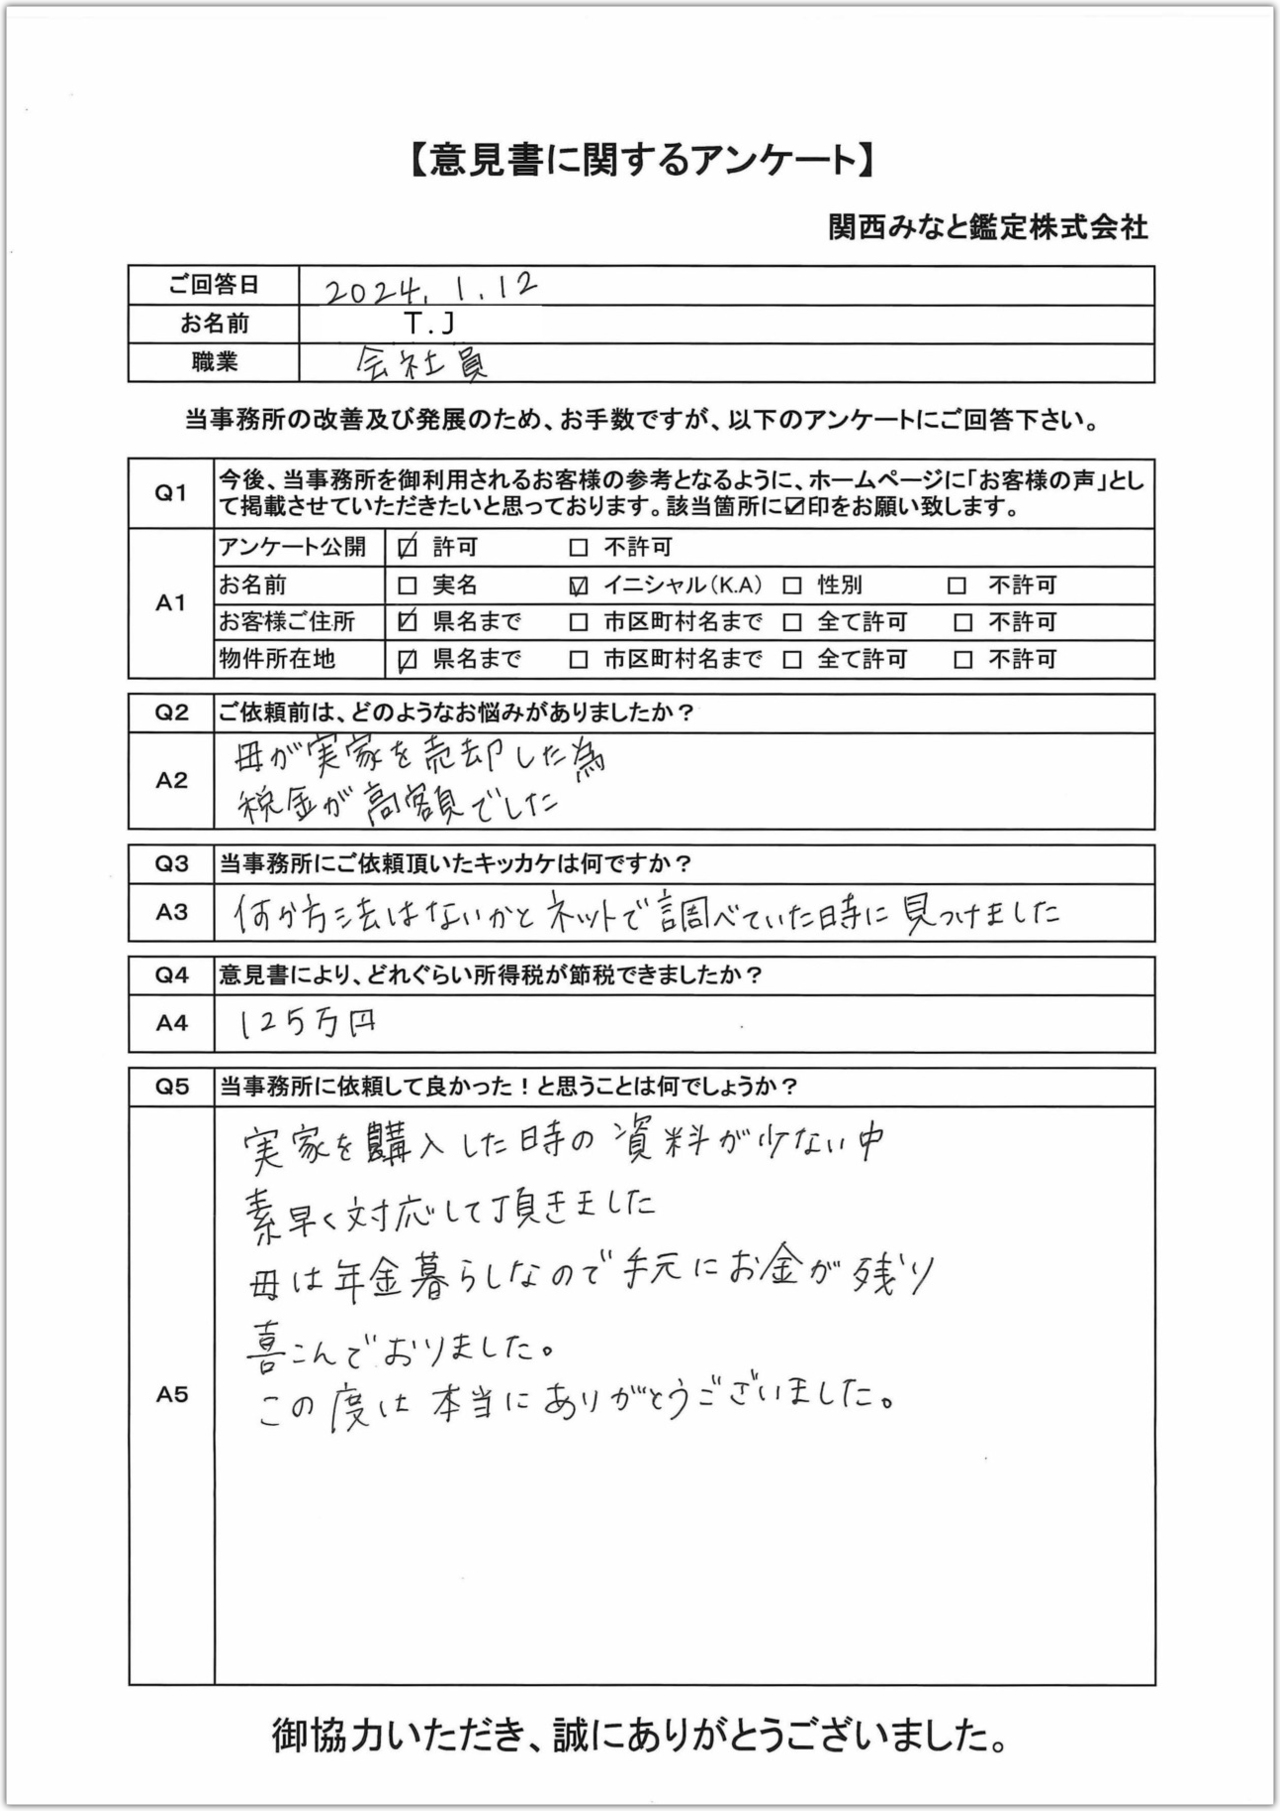 【意見書に関するアンケート】
関西みなと鑑定株式会社
ご回答日 2024.1.12
お名前 T.J
職業 会社員
当事務所の改善及び発展のため、お手数ですが、以下のアンケートにご回答下さい。
Q1 今後、当事務所を御利用されるお客様の参考となるように、ホームページに「お客様の声」とし
て掲載させていただきたいと思っております。該当箇所に☑印をお願い致します。
A1
アンケート公開 ☑ 許可 □ 不許可
お名前 □ 実名 ☑ イニシャル(K.A) □ 性別 □ 不許可
お客様ご住所 ☑ 県名まで □ 市区町村名まで □ 全て許可 □ 不許可
物件所在地 ☑ 県名まで □ 市区町村名まで □ 全て許可 □ 不許可
Q2 ご依頼前は、どのようなお悩みがありましたか?
A2
母が実家を売却した為
税金が高額でした
Q3 当事務所にご依頼頂いたキッカケは何ですか?
A3 何か方法はないかとネットで調べていた時に見つけました
Q4 意見書により、どれぐらい所得税が節税できましたか?
A4 125万円
Q5 当事務所に依頼して良かった!と思うことは何でしょうか?
A5
実家を購入した時の資料が少ない中
素早く対応して頂きました
母は年金暮らしなので手元にお金が残り
喜こんでおりました。
この度は本当にありがとうございました。
御協力いただき、誠にありがとうございました。